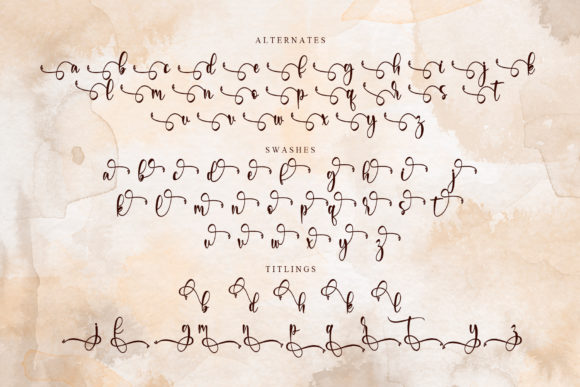 ALTERNATES
a b c d e f g h i j k
l m n o p q r s t
u v w x y z
SWASHES
a b c d e f g h i j
k l m n o p q r s t
u v w x y z
TITLINGS
b d h k l
j k g m n p q r t y z